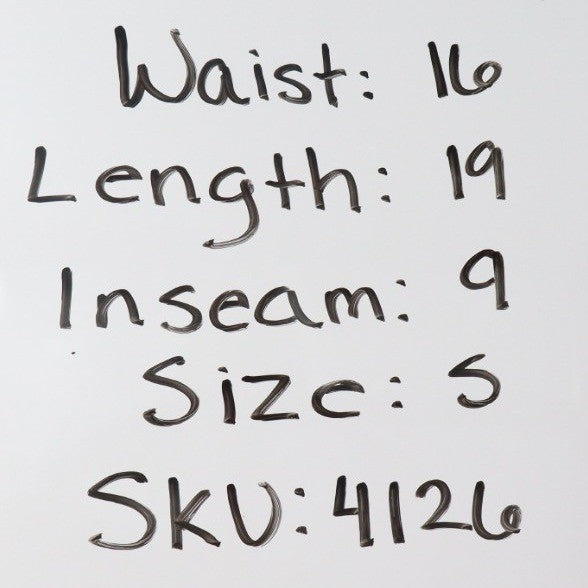 Waist: 16
Length: 19
Inseam: 9
Size: S
SKU: 4126